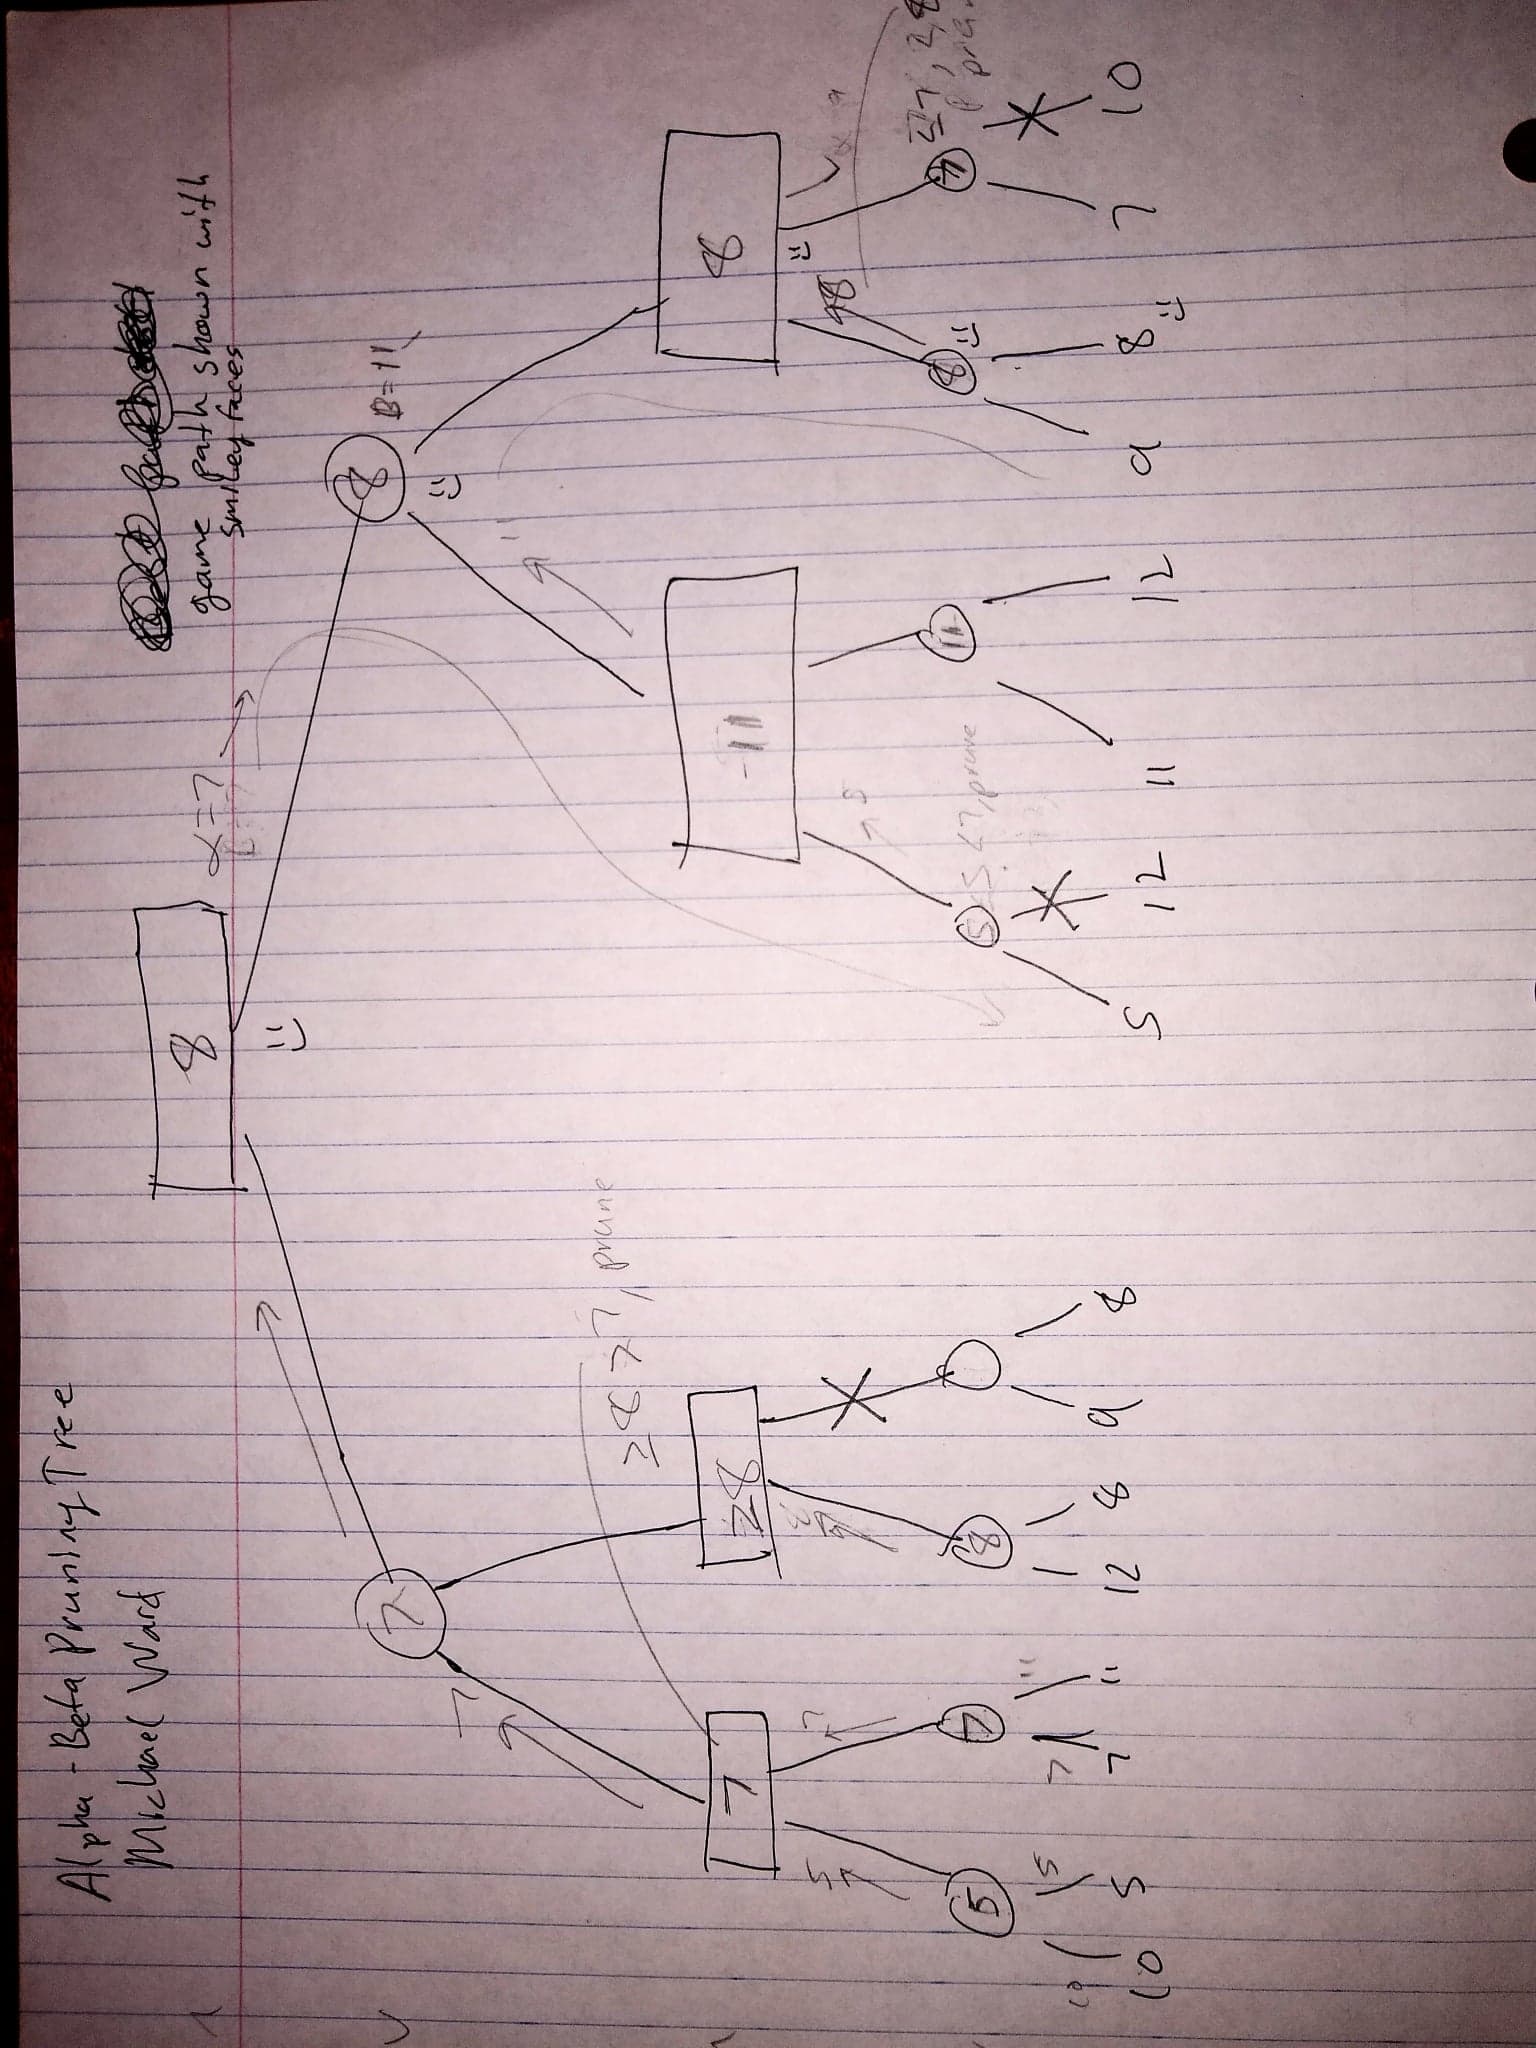 Alpha-Beta Pruning Tree
Michael Ward
game path shown with
smiley faces
8
α=7
7
8
B=11
7
11
≥8>7, prune
7
≥8
11
8
5
7
8
5
8
5
7
8
5
≤5<7, prune
11
8
7
≤7,
10
5
7
11
10
5
7
11
12
8
9
8
5
12
11
12
9
8
7
10